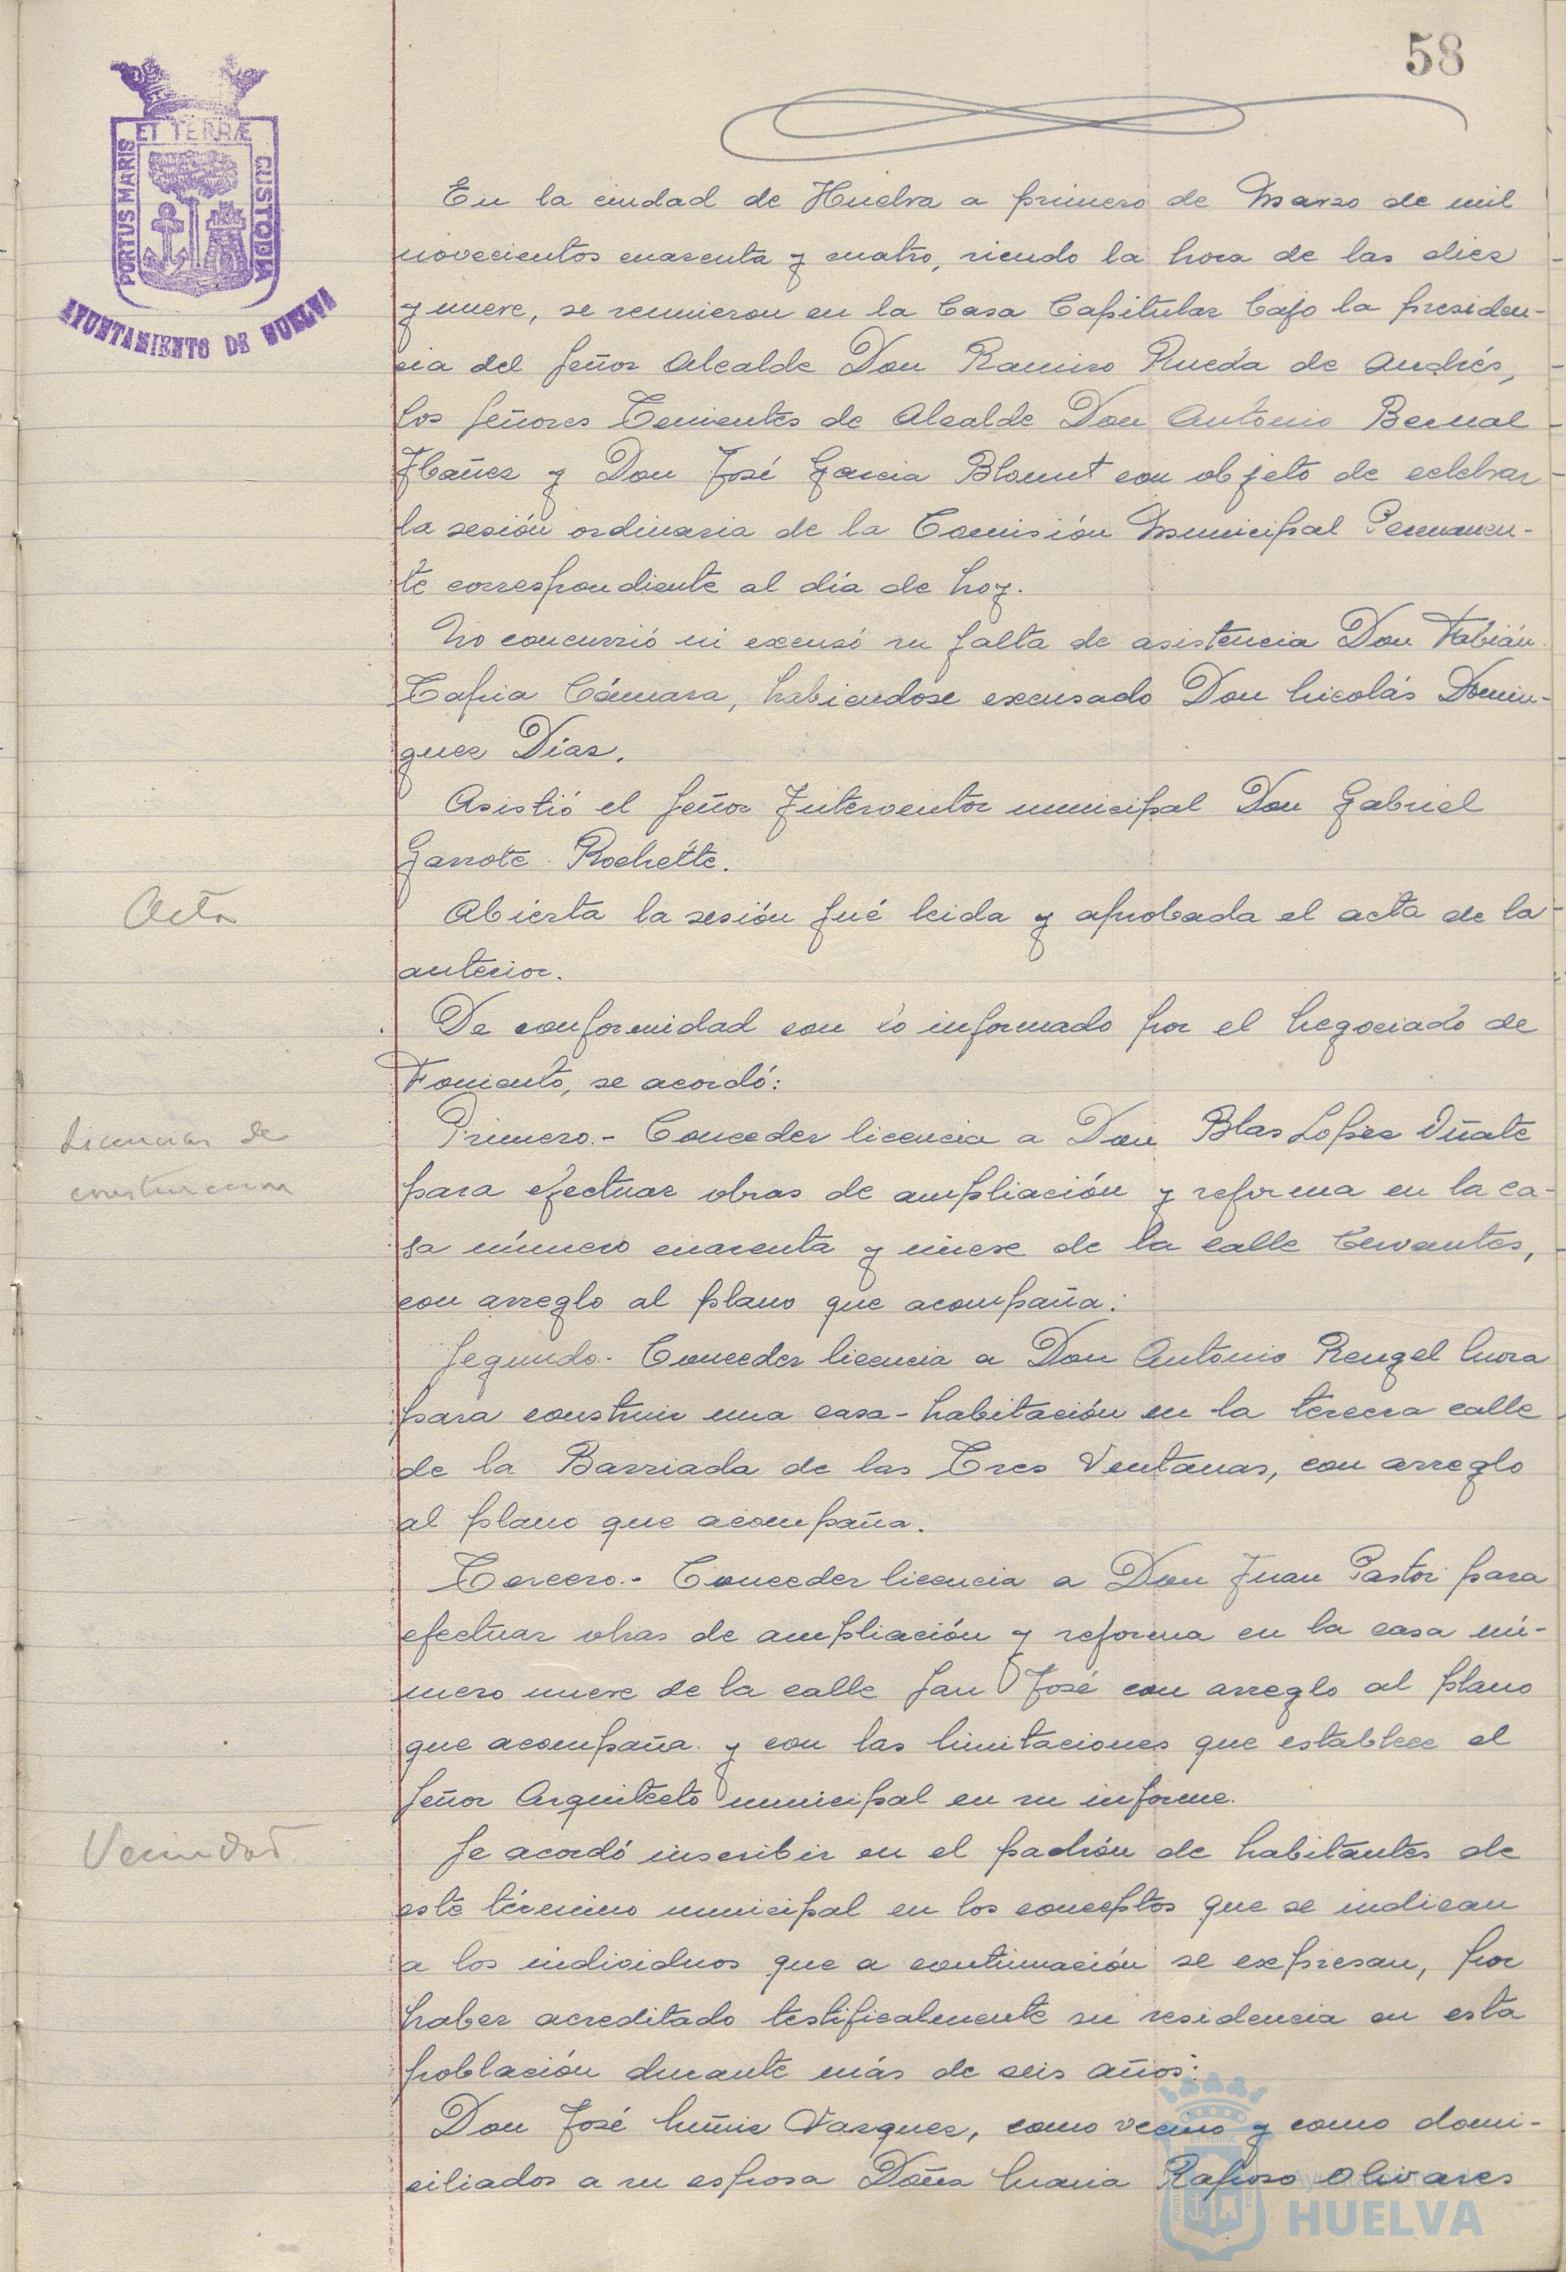 58
PORTUS MARIS
ET TERRÆ
CUSTODIA
AYUNTAMIENTO DE HUELVA
En la ciudad de Huelva a primero de Marzo de mil
novecientos cuarenta y cuatro, siendo la hora de las diez
y nueve, se reunieron en la Casa Capitular bajo la presiden-
cia del Señor Alcalde Don Ramiro Rueda de Andrés,
los Señores Tenientes de Alcalde Don Antonio Bernal
Ibañez y Don José Garcia Blount con objeto de celebrar
la sesión ordinaria de la Comisión Municipal Permanen-
te correspondiente al día de hoy.
No concurrió ni excusó su falta de asistencia Don Fabián
Tapia Cámara, habiendose excusado Don Nicolás Domin-
guez Díaz.
Asistió el Señor Interventor municipal Don Gabriel
Garrote Rochette.
Acta
Abierta la sesión fué leida y aprobada el acta de la
anterior.
De conformidad con lo informado por el Negociado de
Fomento, se acordó:
Licencias de
construccion
Primero.- Conceder licencia a Don Blas Lopez Oñate
para efectuar obras de ampliación y reforma en la ca-
sa número cuarenta y nueve de la calle Cervantes,
con arreglo al plano que acompaña.
Segundo.- Conceder licencia a Don Antonio Rengel Mora
para construir una casa-habitación en la tercera calle
de la Barriada de las Tres Ventanas, con arreglo
al plano que acompaña.
Tercero.- Conceder licencia a Don Juan Pastor para
efectuar obras de ampliación y reforma en la casa nú-
mero nueve de la calle San José con arreglo al plano
que acompaña y con las limitaciones que establece el
Señor Arquitecto municipal en su informe.
Vecindad
Se acordó inscribir en el padrón de habitantes de
este término municipal en los conceptos que se indican
a los individuos que a continuación se expresan, por
haber acreditado testificalmente su residencia en esta
población durante más de seis años:
Don José Muñiz Vazquez, como vecino y como domi-
ciliados a su esposa Doña Maria Raposo Olivares
HUELVA